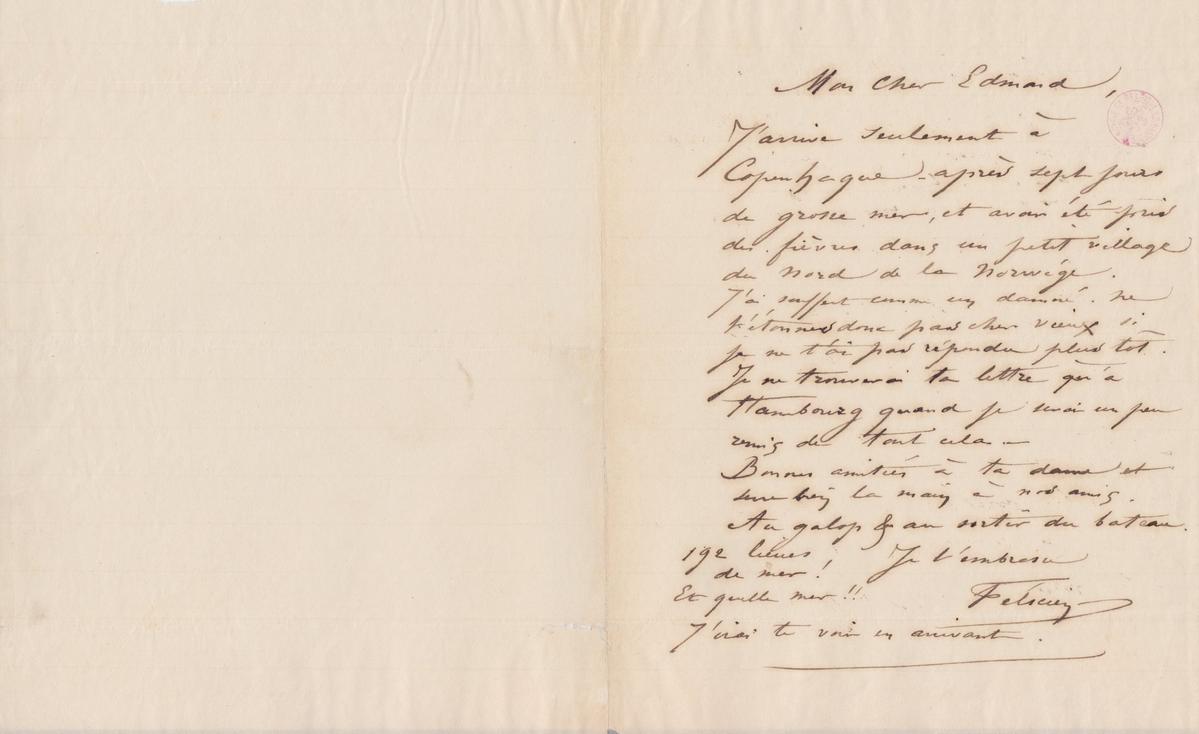 Mon cher Edmond,
J'arrive seulement à
Copenhague - après sept jours
de grosse mer, et avoir été pris
des fièvres dans un petit village
du Nord de la Norwége.
J'ai souffert comme un damné. ne
t'étonnes donc pas cher vieux si
je ne t'ai pas répondu plus tôt.
Je ne trouverai ta lettre qu'à
Hambourg quand je serai un peu
remis de tout cela. —
Bonnes amitiés à ta dame et
serre bien la main à nos amis.
Au galop & au sortir du bateau.
192 lieues
de mer!
Et quelle mer!!
Je t'embrasse
Félicien
J'irai te voir en arrivant.